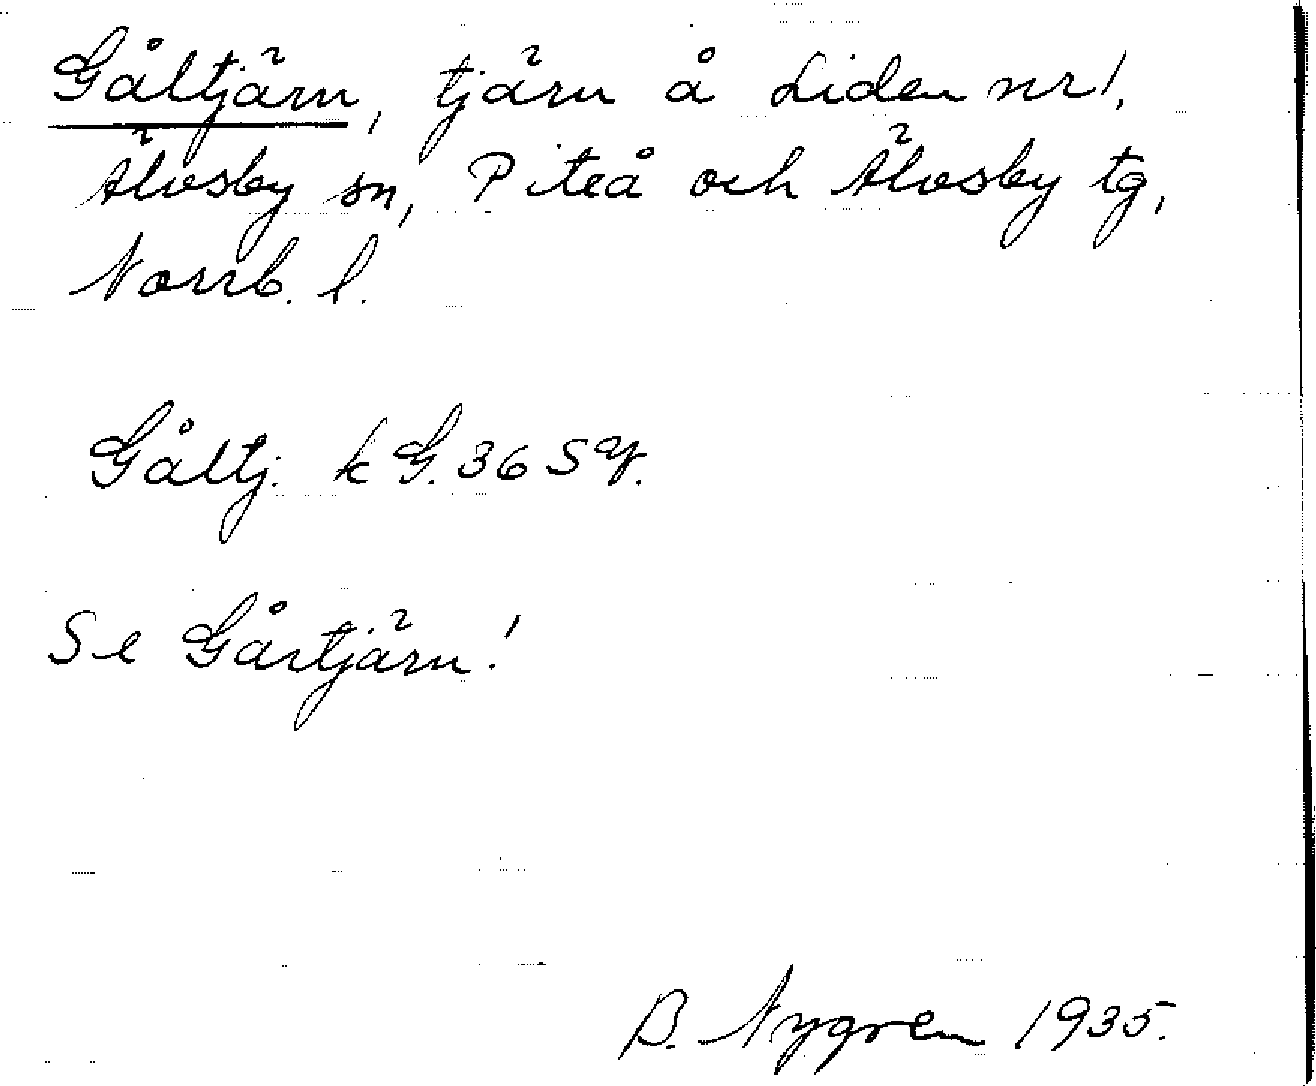 Gåltjärn, tjärn å Liden nr 1,
Älvsby sn, Piteå och Älvsby tg,
Norrb. l.
Gåltj. k G. 36 S
Se Gårtjärn!
B. Nygren 1935.